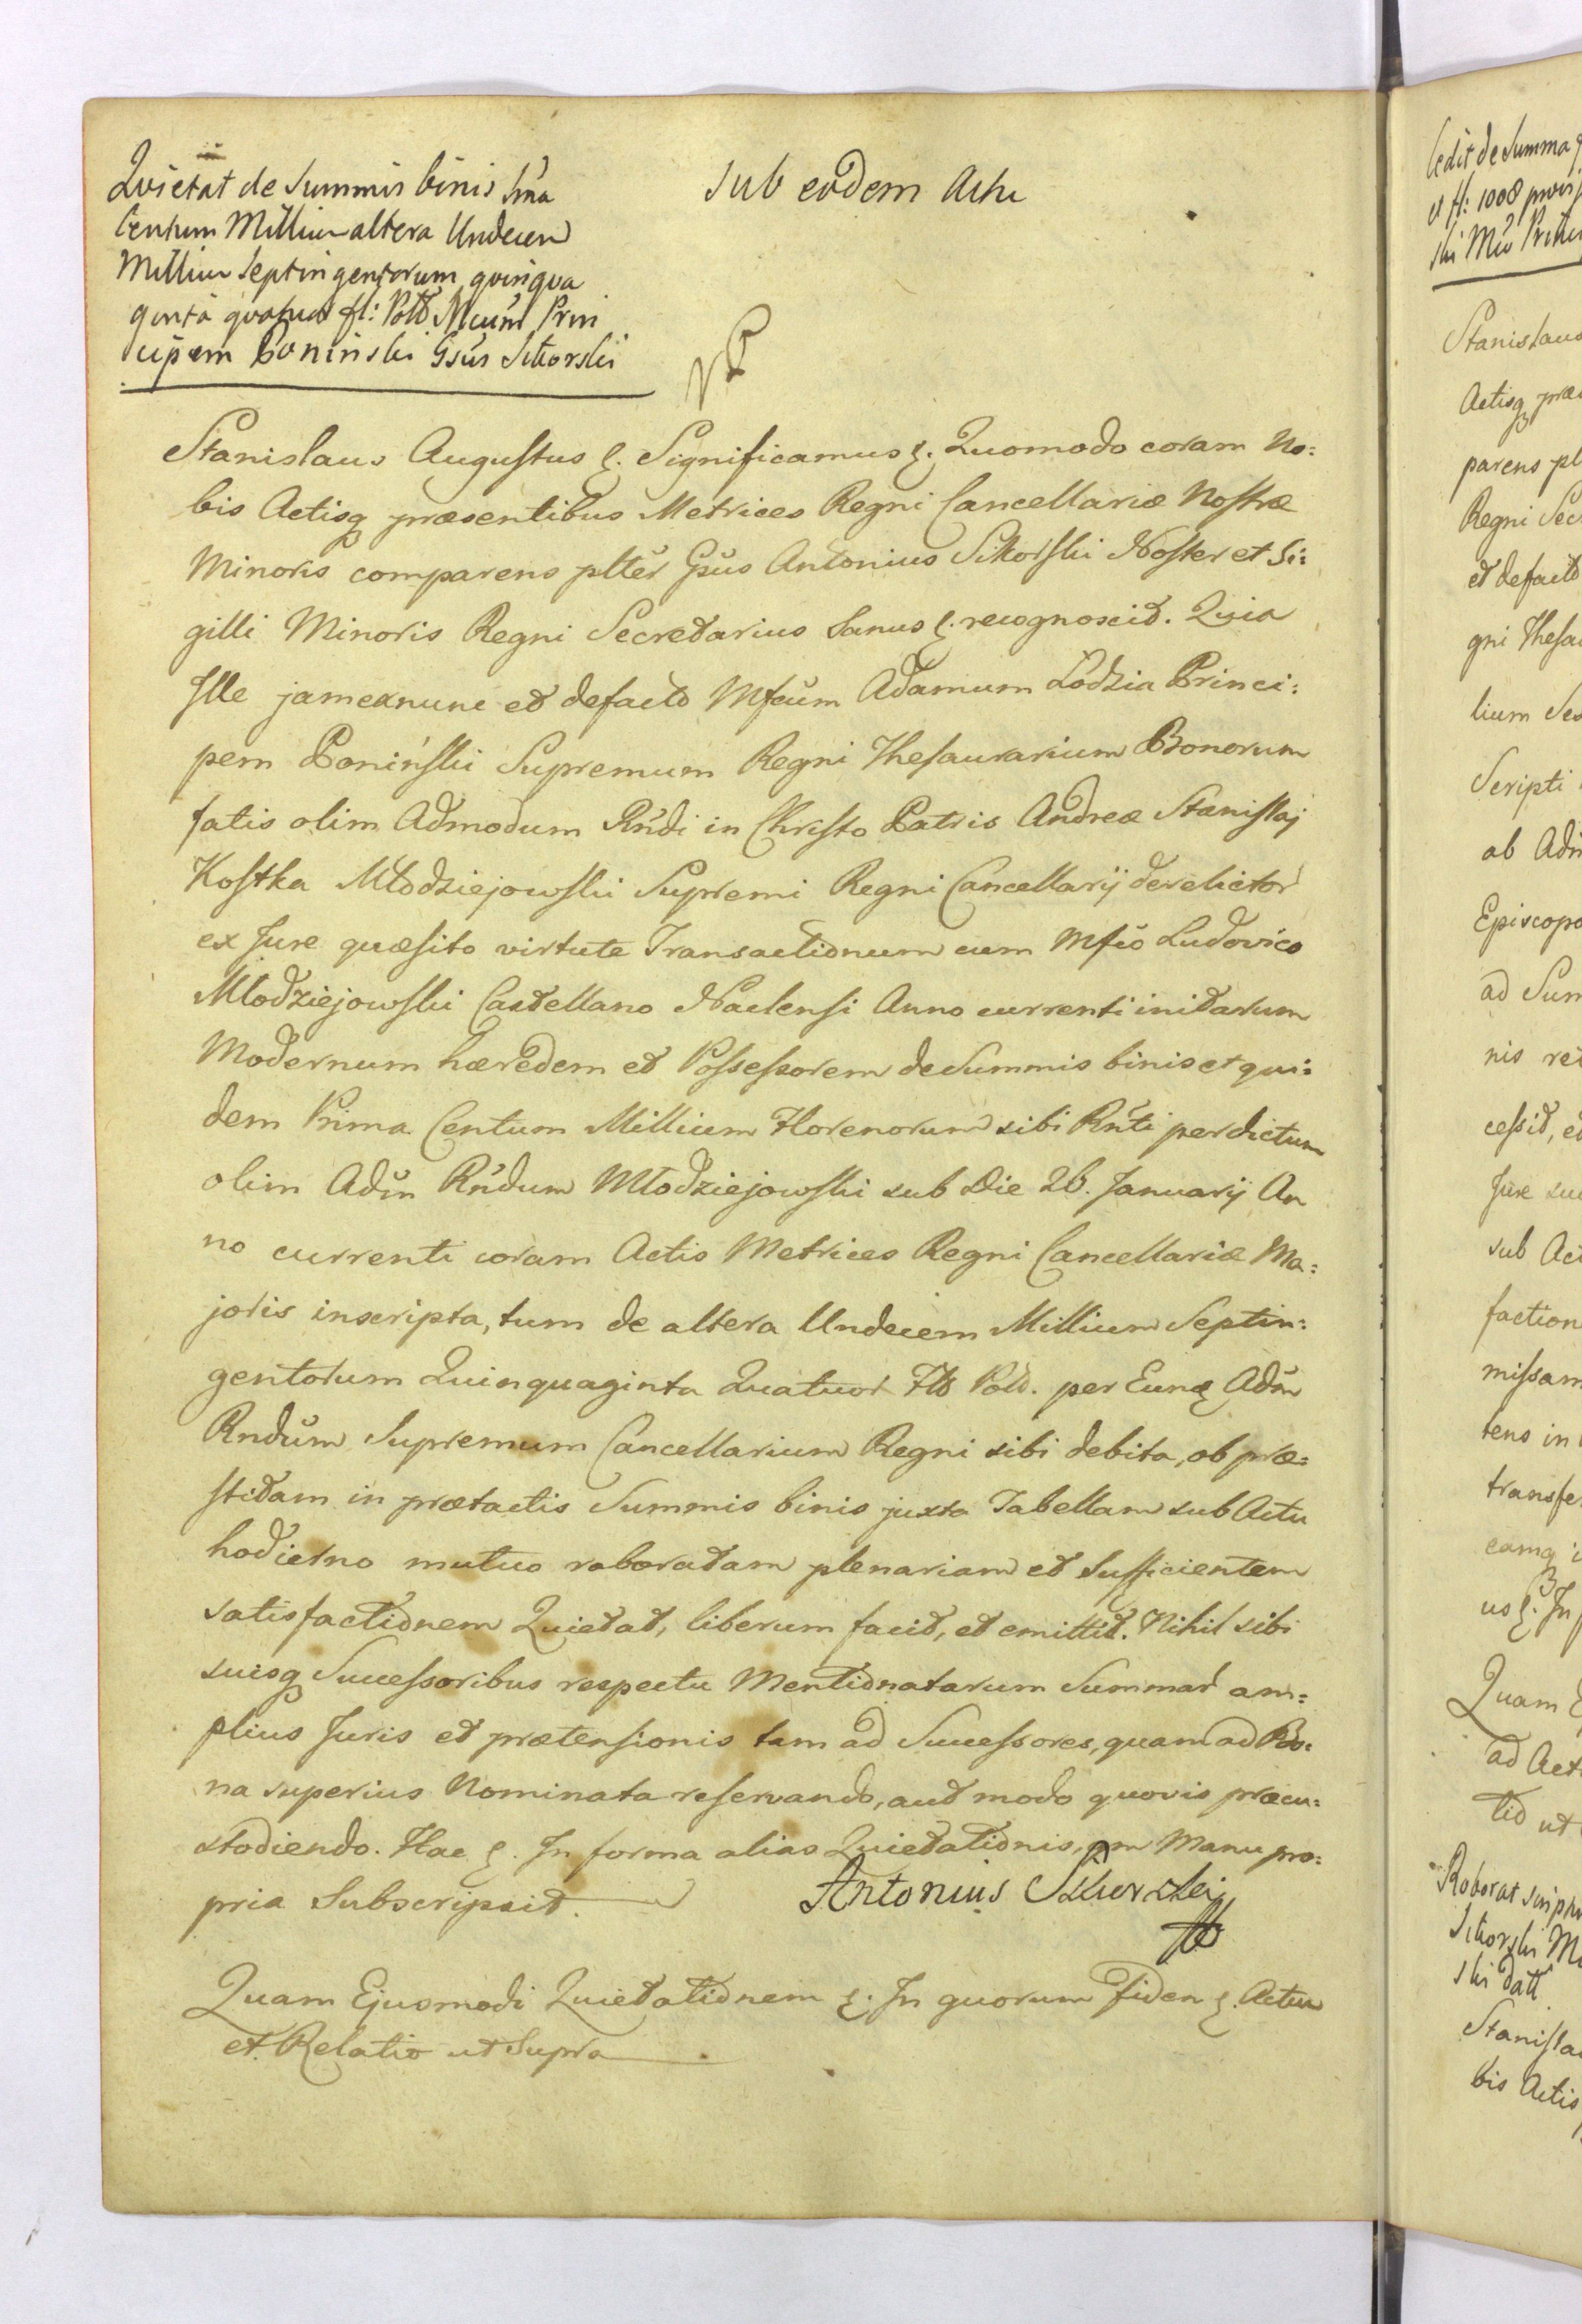 Quietat de Summis binis Ima
Centum Millium altera Undecem
Millium Septingentorum quinqua
ginta quatuor fl: Poll Mcum Prin
cipem Poninski Gsus Sikorski
Sub eodem Actu
Stanislaus Augustus &. Significamus &. Quomodo coram No:
bis Actisq praesentibus Metrices Regni Cancellariæ Nostræ
Minoris comparens plter Gsus Antonius Sikorski Noster et Si:
gilli Minoris Regni Secretarius Sanus &. recognoscit. Quia
Ille jamexnunc et defacto Mfcum Adamum Lodzia Princi:
pem Poniński Supremum Regni Thesaurarium Bonorum
fatis olim Admodum Rndi in Christo Patris Andreæ Stanislaj
Kostka Młodziejowski Supremi Regni Cancellarij derelictor
ex Jure quæsito virtute Transactionum cum Mfco Ludovico
Młodziejowski Castellano Naclensi Anno currenti initarum
Modernum hæredem et Possessorem de Summis binis et qui:
dem Prima Centum Millium Florenorum sibi Rnti per dictum
olim Adm Rndum Młodziejowski sub Die 26. Januarij An
no currenti coram Actis Metrices Regni Cancellariæ Ma:
joris inscripta, tum de altera Undecem Millium Septin:
gentorum Quinquaginta Quatuor Fll Poll. per Eunq Adm
Rndum Supremum Cancellarium Regni sibi debita, ob præ:
stitam in prætactis Summis binis juxta Tabellam sub Actu
hodierno mutuo roboratam plenariam et Sufficientem
satisfactionem Quietat, liberum facit, et emittit. Nihil sibi
suisq Successoribus respectu Mentionatarum Summar am:
plius Juris et prætensionis tam ad Successores, quam ad Bo:
na superius Nominata reservando, aut modo quovis præcu:
stodiendo. Hac &. In forma alias Quietationis, Manu pro:
pria Subscripsit.
Antonius Sikorski
Quam Ejusmodi Quietationem &. In quorum Fidem &. Actum
et Relatio ut Supra
Cedit de Summa
et fl: 1008
Stanislaus
Actisq præ
parens pl
Regni Sec
et defacto
gni Thesau
lium Ses
Scripti
ab Adm
Episcopo
ad Sum
nis
cessit, et
Jure su
sub Act
faction
missam
tens in
transfe
eamq
us &. In
Quam E
ad Act
tio ut
Roborat
Sikorski
Stanisla
bis Actis